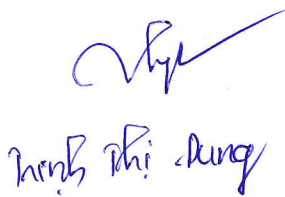 Trịnh Thị Dung